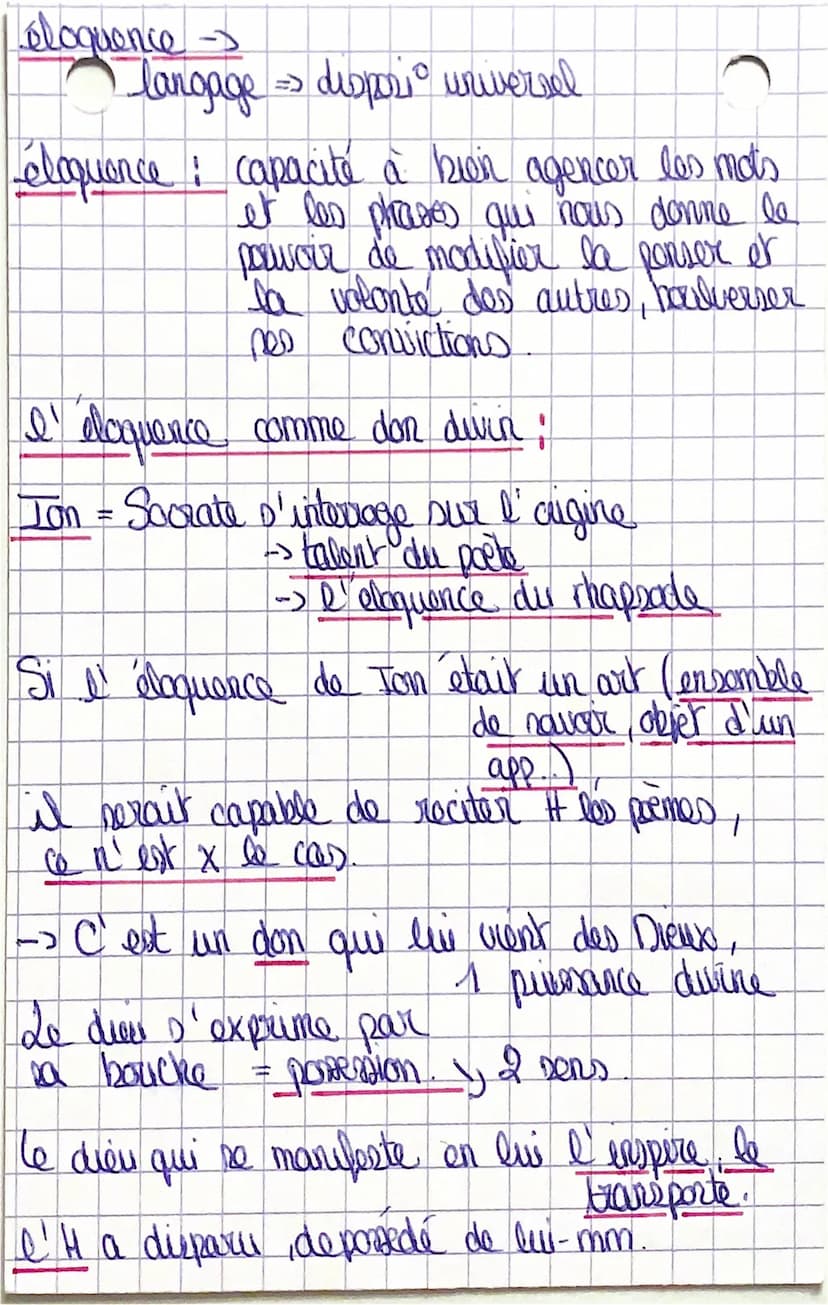 éloquence ->
langage => disposi° universel
éloquence : capacité à bien agencer les mots
et les phases qui nous donne le
pouvoir de modifier la penser et
la volonté des autres, boulverser
ses convictions.
l'éloquence comme don divin :
Ion = Socrate s'interroge sur l'origine
-> talent du poète
-> l'eloquence du rhapsode
Si l'éloquence de Ion était un art (ensemble
de savoir, objet d'un
app..)
il serait capable de reciter tt les poèmes,
ce n'est x le cas.
-> C'est un don qui lui vient des Dieux,
1 puissance divine
Le dieu s'exprime par
sa bouche = possession. ↘ 2 sens.
le dieu qui se manifeste en lui l'inspire, le
transporte.
l'H a disparu, depossédé de lui-mm.